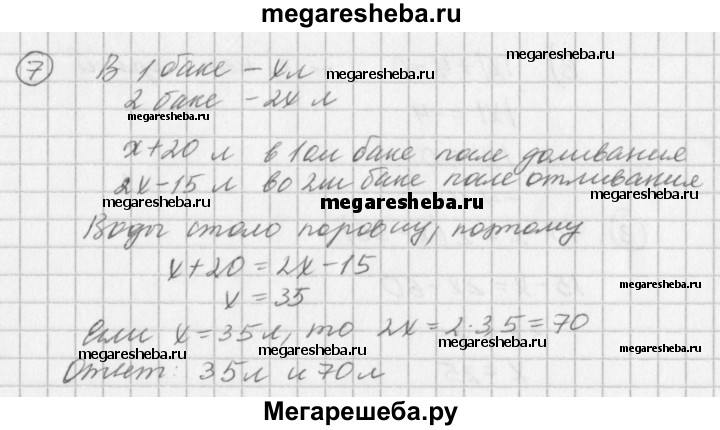 megaresheba.ru
7 В 1 баке - х л megaresheba.ru megaresheba.ru
2 баке - 2х л
megaresheba.ru megaresheba.ru
х+20 л в 1ом баке после доливания
2х-15 л во 2ом баке после отливания
megaresheba.ru megaresheba.ru megaresheba.ru
Воды стало поровну, поэтому
х+20 = 2х-15
megaresheba.ru
х = 35
Если х = 35л, то 2х = 2·3,5 = 70
megaresheba.ru megaresheba.ru megaresheba.ru
Ответ: 35л и 70л
Мегарешеба.ру